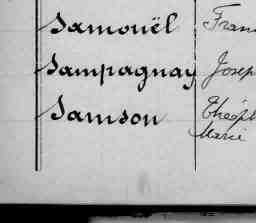 Samouël Fran
Sampagnay Josep
Samson Théoph
Marie